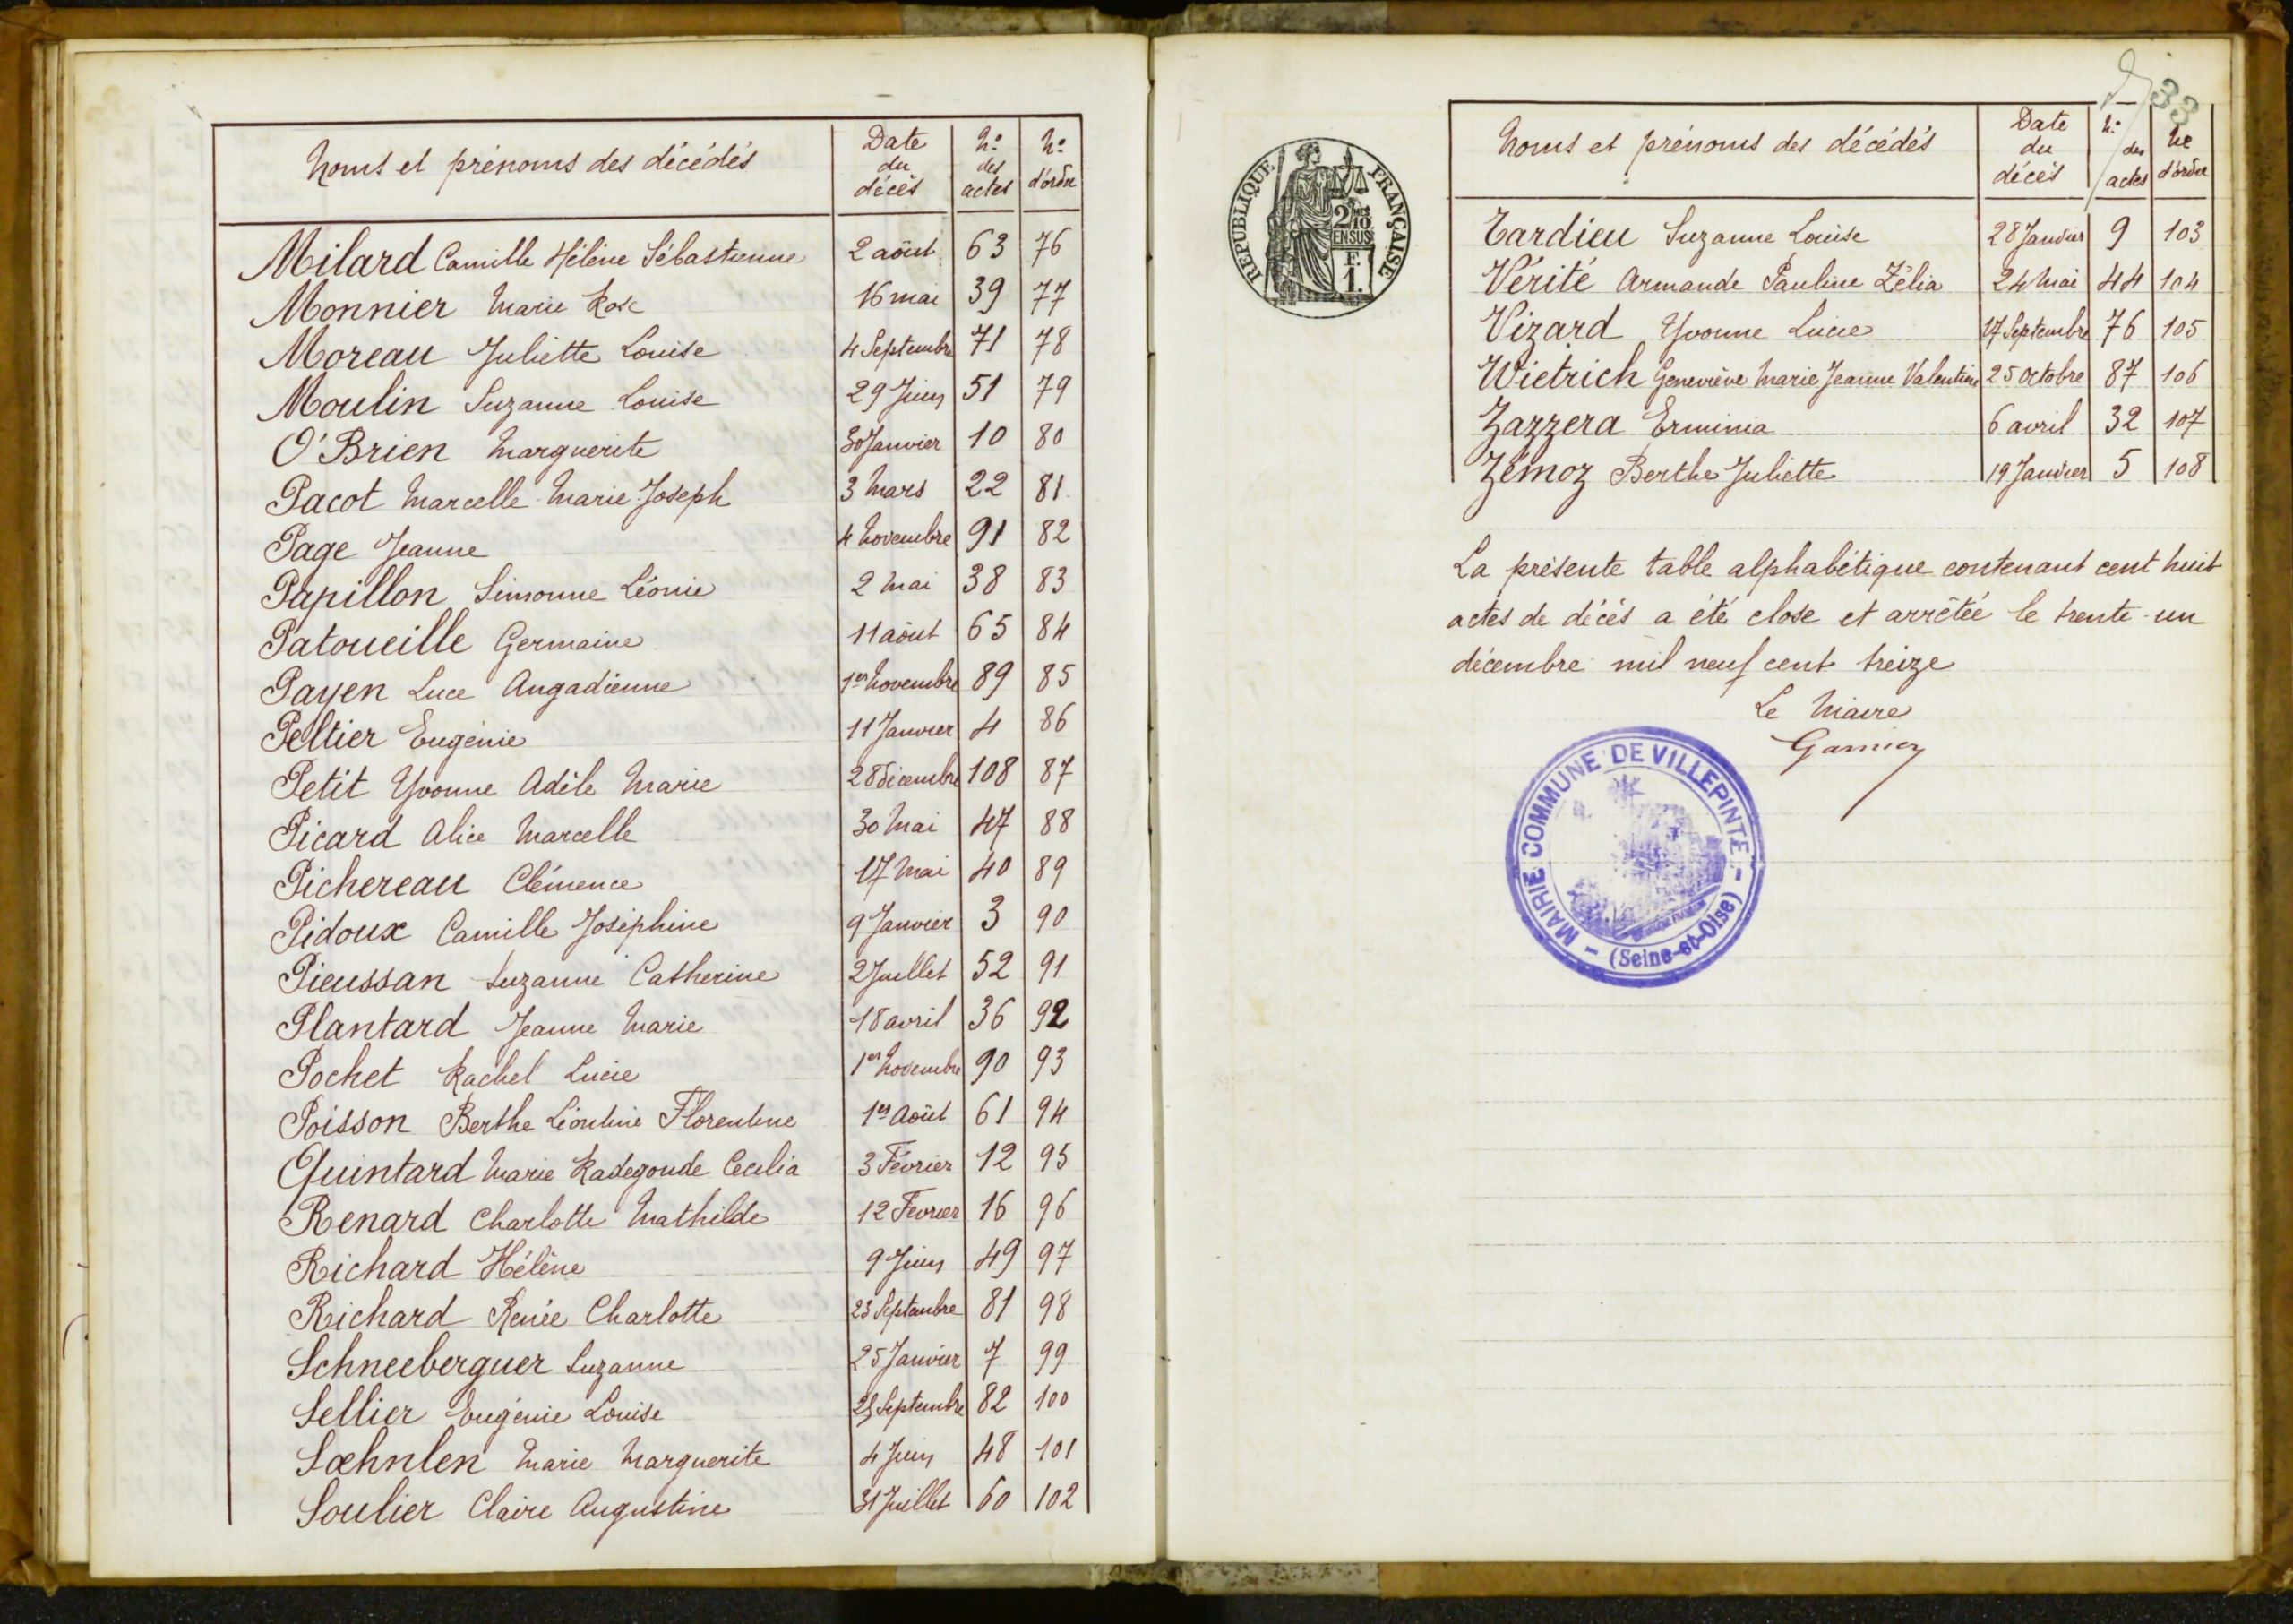 Noms et prénoms des décédés | Date du décès | N° des actes | N° d'ordre
Milard Camille Hélène Sébastienne | 2 août | 63 | 76
Monnier Marie Rose | 16 mai | 39 | 77
Moreau Juliette Louise | 4 Septembre | 71 | 78
Moulin Suzanne Louise | 29 Juin | 51 | 79
O'Brien Marguerite | 30 Janvier | 10 | 80
Pacot Marcelle Marie Joseph | 3 Mars | 22 | 81
Page Jeanne | 4 Novembre | 91 | 82
Papillon Simonne Léonie | 2 Mai | 38 | 83
Patoueille Germaine | 11 août | 65 | 84
Payen Luce Angadienne | 1er Novembre | 89 | 85
Peltier Eugénie | 11 Janvier | 4 | 86
Petit Yvonne Adèle Marie | 28 décembre | 108 | 87
Picard Alice Marcelle | 30 Mai | 47 | 88
Pichereau Clémence | 17 Mai | 40 | 89
Pidoux Camille Joséphine | 9 Janvier | 3 | 90
Pieussan Suzanne Catherine | 2 Juillet | 52 | 91
Plantard Jeanne Marie | 18 avril | 36 | 92
Pochet Rachel Lucie | 1er Novembre | 90 | 93
Poisson Berthe Léontine Florentine | 1er Août | 61 | 94
Quintard Marie Radegonde Cecilia | 3 Février | 12 | 95
Renard Charlotte Mathilde | 12 Fevrier | 16 | 96
Richard Hélène | 9 Juin | 49 | 97
Richard Renée Charlotte | 23 Septembre | 81 | 98
Schneeberguer Suzanne | 25 Janvier | 7 | 99
Sellier Eugénie Louise | Septembre | 82 | 100
Sœhnlen Marie Marguerite | 4 Juin | 48 | 101
Soulier Claire Augustine | 31 Juillet | 60 | 102
33
RÉPUBLIQUE FRANÇAISE
2/10
EN SUS
F.
1.
Noms et prénoms des décédés | Date du décès | N° des actes | No d'ordre
Tardieu Suzanne Louise | 28 Janvier | 9 | 103
Vérité Armande Pauline Zélia | 24 Mai | 44 | 104
Vizard Yvonne Lucie | 17 Septembre | 76 | 105
Wietrich Geneviève Marie Jeanne Valentine | 25 octobre | 87 | 106
Zazzera Erminia | 6 avril | 32 | 107
Zémoz Berthe Juliette | 19 Janvier | 5 | 108
La présente table alphabétique contenant cent huit
actes de décès a été close et arrêtée le trente-un
décembre mil neuf cent treize
Le Maire
MAIRIE COMMUNE DE VILLEPINTE
(Seine-et-Oise)